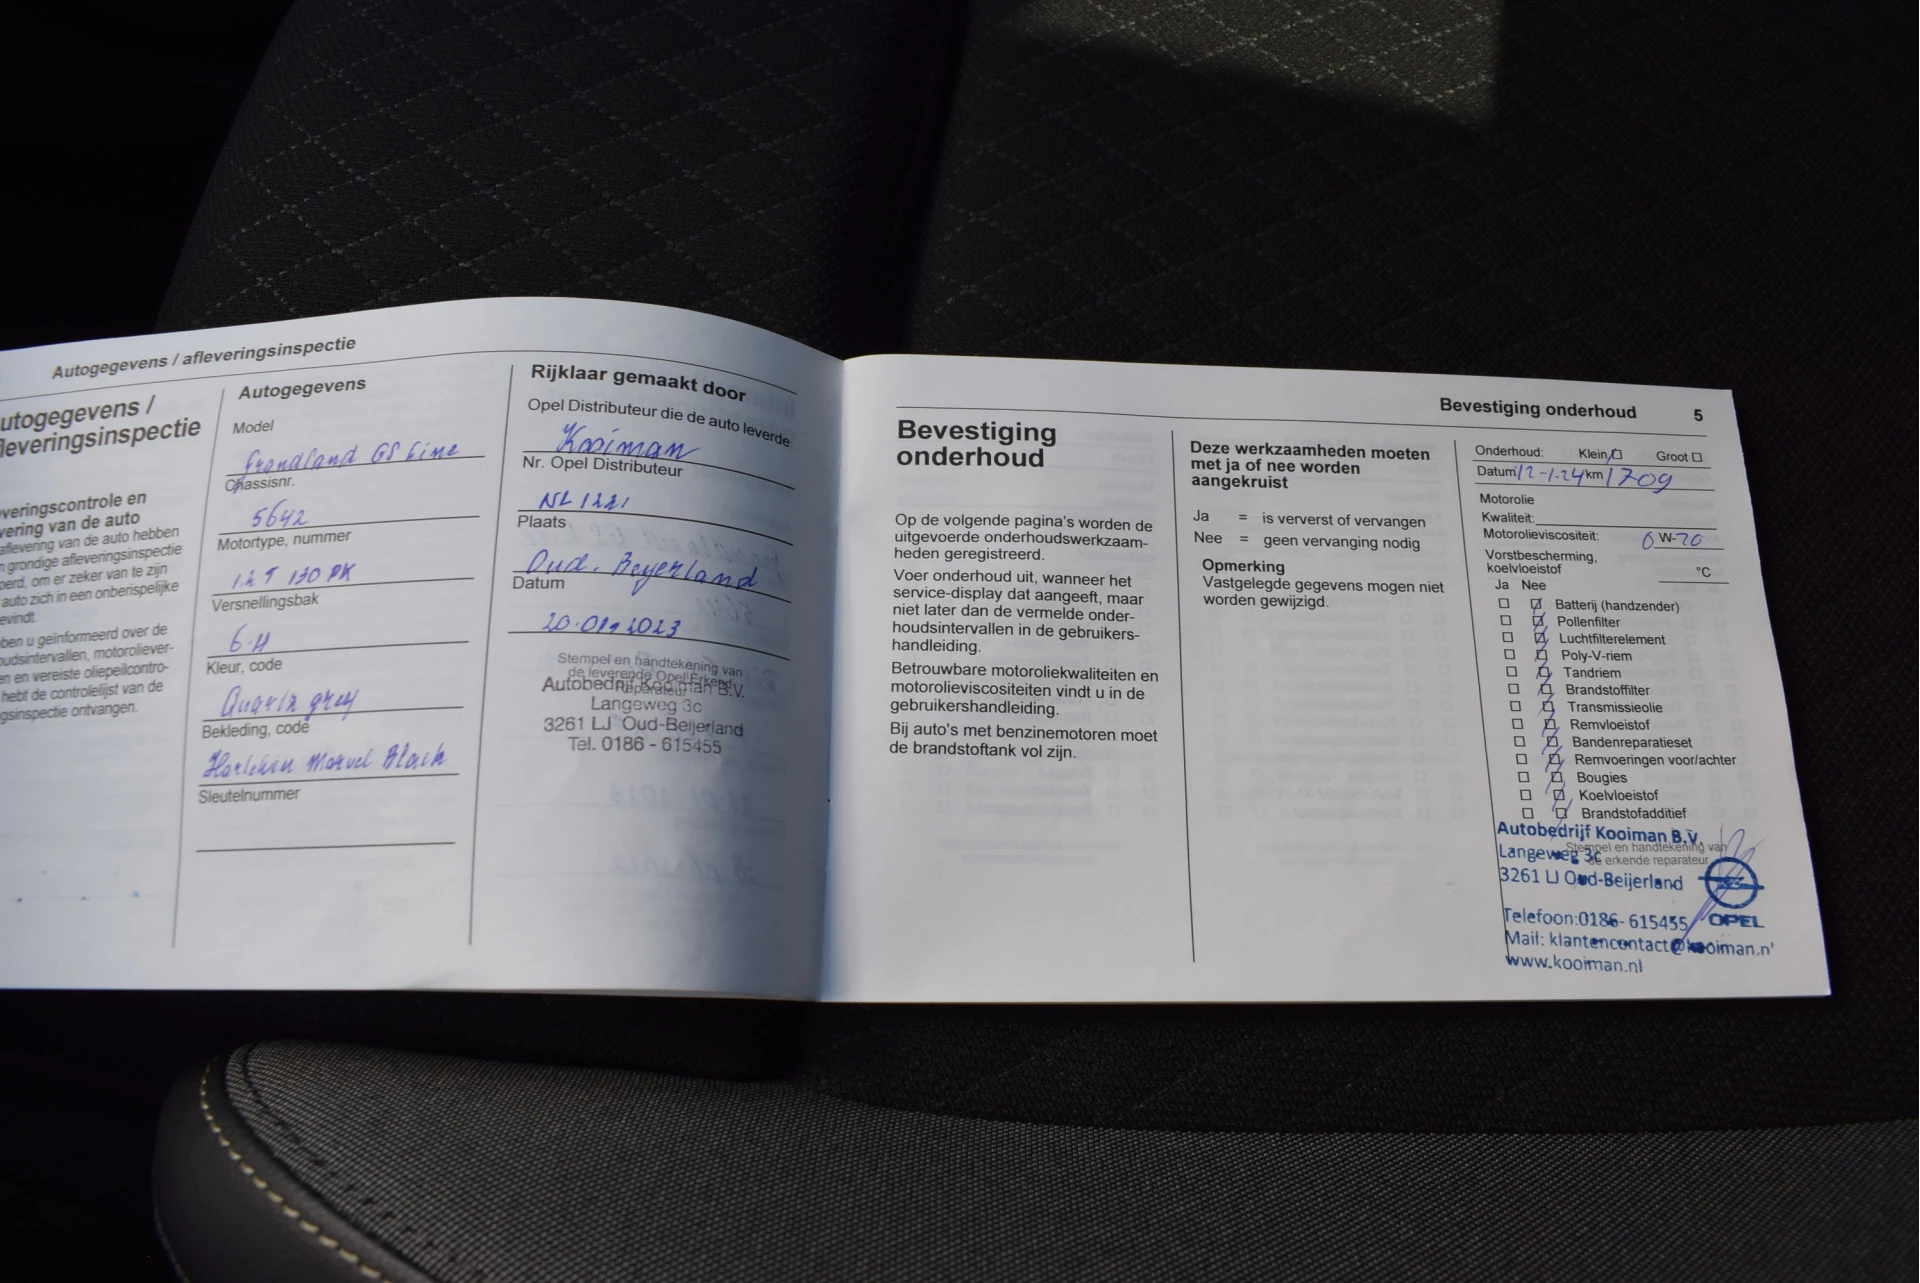 Autogegevens / afleveringsinspectie
utogegevens /
fleveringsinspectie
everingscontrole en
vering van de auto
aflevering van de auto hebben
n grondige afleveringsinspectie
oerd, om er zeker van te zijn
auto zich in een onberispelijke
evindt.
ben u geïnformeerd over de
oudsintervallen, motoroliever-
en en vereiste oliepeilcontro-
hebt de controlelijst van de
gsinspectie ontvangen.
Autogegevens
Model
Grandland GS Line
Chassisnr.
5642
Motortype, nummer
1.2 T 130 PK
Versnellingsbak
6-H
Kleur, code
grey
Bekleding, code
Marvel Black
Sleutelnummer
Rijklaar gemaakt door
Opel Distributeur die de auto leverde
Kooiman
Nr. Opel Distributeur
NL 1221
Plaats
Oud-Beyerland
Datum
20-01-2023
Stempel en handtekening van
de leverende Opel Erkend
Reparateur
Autobedrijf Kooiman B.V.
Langeweg 3c
3261 LJ Oud-Beijerland
Tel. 0186 - 615455
Bevestiging onderhoud 5
Bevestiging
onderhoud
Op de volgende pagina's worden de
uitgevoerde onderhoudswerkzaam-
heden geregistreerd.
Voer onderhoud uit, wanneer het
service-display dat aangeeft, maar
niet later dan de vermelde onder-
houdsintervallen in de gebruikers-
handleiding.
Betrouwbare motoroliekwaliteiten en
motorolieviscositeiten vindt u in de
gebruikershandleiding.
Bij auto's met benzinemotoren moet
de brandstoftank vol zijn.
Deze werkzaamheden moeten
met ja of nee worden
aangekruist
Ja = is ververst of vervangen
Nee = geen vervanging nodig
Opmerking
Vastgelegde gegevens mogen niet
worden gewijzigd.
Onderhoud: Klein Groot
Datum 12-1-24 km 1709
Motorolie
Kwaliteit:
Motorolieviscositeit: 0 W-20
Vorstbescherming,
koelvloeistof °C
Ja Nee
Batterij (handzender)
Pollenfilter
Luchtfilterelement
Poly-V-riem
Tandriem
Brandstoffilter
Transmissieolie
Remvloeistof
Bandenreparatieset
Remvoeringen voor/achter
Bougies
Koelvloeistof
Brandstofadditief
Stempel en handtekening van
de erkende reparateur
Autobedrijf Kooiman B.V.
Langeweg 3c
3261 LJ Oud-Beijerland
Telefoon:0186-615455
OPEL
Mail: klantencontact@kooiman.n
www.kooiman.nl